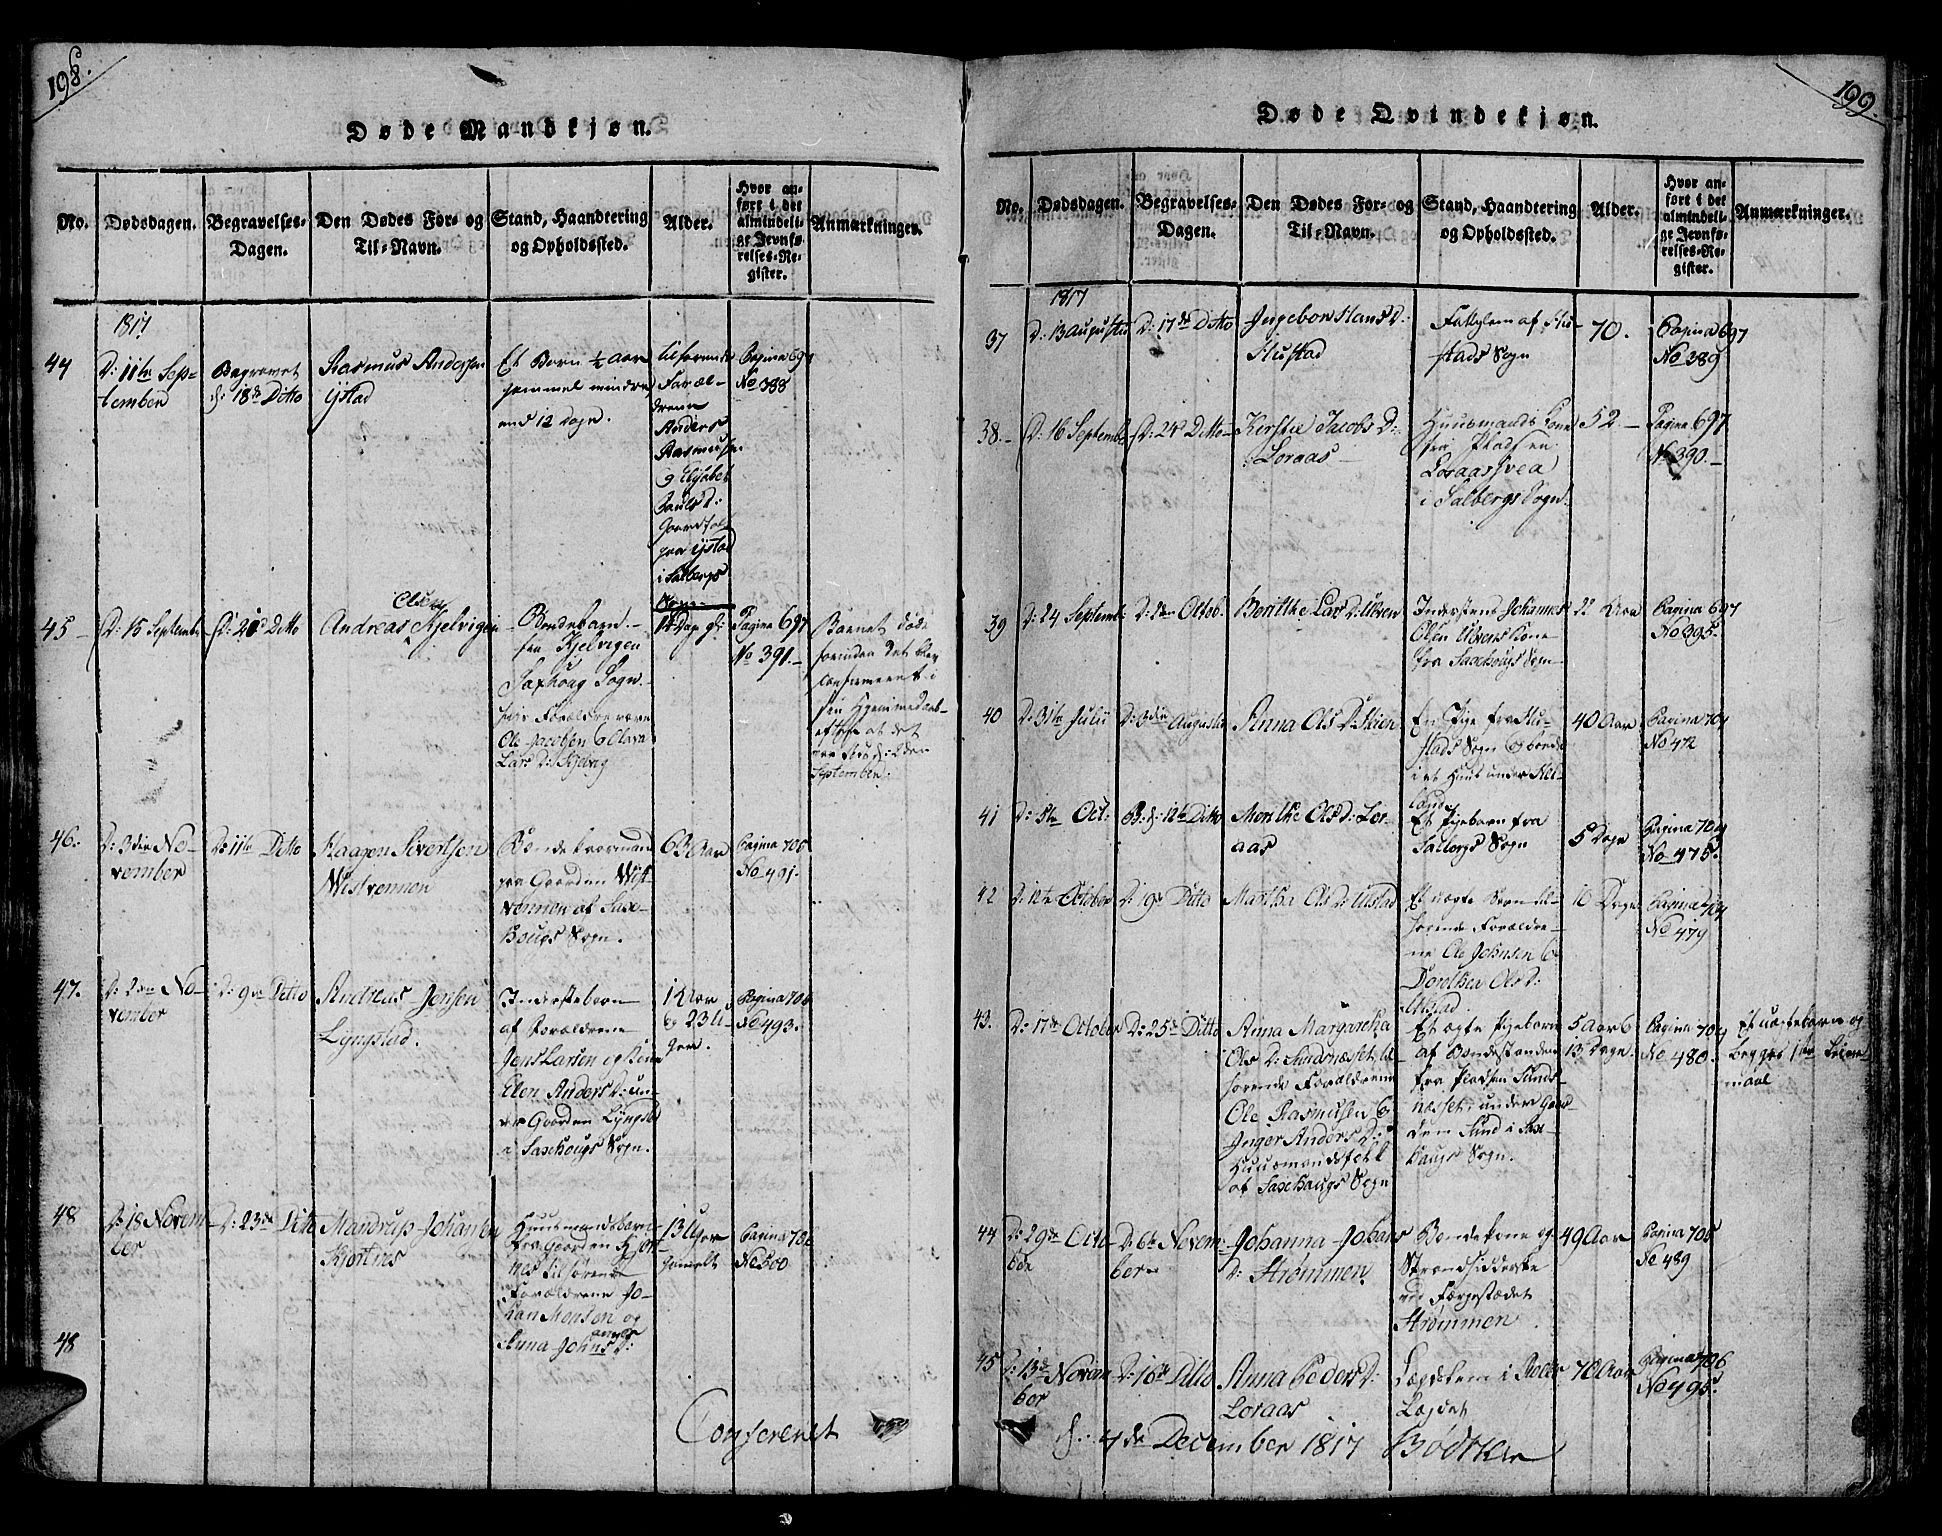 198.
Døde Mandkjøn.
No. Dødsdagen. Begravelses-Dagen. Den Dødes For- og Til-Navn. Stand, Haandtering og Opholdssted. Alder. Hvor anført i det almindelige Jevnførelses-Register. Anmærkninger.
1817
44
D: 11te Sep-
tember
Begravet
d: 18de Ditto
Rasmus Andersen
Ystad
Et Barn ½ Aar
gammel mindre
end 12 Dage.
tilhørende
Foræl-
drene
Anders
Rasmusen
og Elisabet
Pauls D:
Gaardfolk
fra Ystad
i Salbergs
Sogn
Pagina 697
No 388
45
D: 15 Septemb
D: 21 Ditto
Olsen
Andreas Kjelvigen
Bondebarn
fra Kjelvigen
Saxhoug Sogn.
hvis Forældre være
Ole Jacobsen & Olava
Lars D: Kjelvig
14 Dag gl:
Pagina 697
No 391.
Barnet døde
forinden det blev
confirmeret i
sin Hjemmedaab
efter at det
September.
46.
D: 3die No-
vember
D: 11te Ditto
Haagen Sivertsen
Wistvennen
Bondekaarmand
fra Gaarden Wist-
vennen af Saxe-
hougs Sogn.
63 Aar
Pagina 705
No 491.
47.
D: 2den No-
vember
D: 9de Ditto
Andreas Jensen
Lyngstad.
Inderstebarn
af Forældrene
Jens Larsen og Kone
Elen Anders D: un-
der Gaarden Lyngstad
i Saxehougs Sogn.
1 Aar
og 23 U-
ger.
Pagina 706
No 493.
48
D: 18 Novem-
ber
D: 23de Ditto
Mandrup Johansen
Kjortnes
Huusmandsbarn
fra Gaarden Kjort-
nes tilhørende
Forældrene Jo-
han Monsen og
Anna Johns D:
13 Uger
gammelt
Pagina 706
No 500
48
Confereret
199.
Døde Qvindekjøn.
No. Dødsdagen. Begravelses-Dagen. Den Dødes For- og Til-Navn. Stand, Haandtering og Opholdssted. Alder. Hvor anført i det almindelige Jevnførelses-Register. Anmærkninger.
1817
37
D: 13 Augustii
D: 17de Ditto
Ingebor Hans D:
Hustad
Fattiglem af Hu-
stads Sogn
70.
Pagina 697
No 389
38.
D: 16 Septemb
D: 24d Ditto
Kirstie Jacobs D:
Loraas
Huusmands Kone
fra Pladsen
Loraassvea
i Salbergs Sogn.
52
Pagina 697
No 390.
39
D: 24 Septemb:
D: 2den Octob.
Berithe Lars D: Ulven
Inderstens Johannes
Olsen Ulvens Kone
fra Saxehougs Sogn
22 Aar
Pagina 697
No 395.
40
D: 31te Julii
D: 3die Augustii
Anna Ols D: Stien
En Pige fra Hu-
stads Sogn & boende
i et Huus under Hel-
lans
40 Aar
Pagina 704
No 472
41
D: 5te Oct:
B: d: 12te Ditto
Merethe Ols D: Lor-
aas
Et Pigebarn fra
Salbergs Sogn
5 Dage
Pagina 704
No 475.
42
D: 12te October
D: 19de Ditto
Martha Ols D: Ulstad
Et uægte Barn til-
hørende Forældre-
ne Ole Johnsen &
Dorothea Ols D:
Ulstad
10 Dage
Pagina 704
No 479
43.
D: 17de October
D: 25de Ditto
Anna Margaretha
Ols D: Sundsnæsset til-
hørende Forældrene
Ole Rasmusen &
Inger Anders D:
Huusmandsfolk
af Saxehaugs Sogn
Et ægte Pigebarn
af Bondestanden
fra Pladsen Sunds-
næsset: under Gaar-
den Sund i Saxe-
haugs Sogn.
5 Aar &
13 Dage.
Pagina 704
No 480.
Et uægtebarn og
begges 1ste Leier-
maal
44
D: 29de Octo-
ber
D: 6te Novem-
ber
Johanna Johans
D: Strømmen
Bondekone og
Strandsidderske
ved Færgestædet
Strømmen
49 Aar
Pagina 705
No 489
45
D: 13de Novem-
ber
D: 16de Ditto
Anna Peders D:
Loraas
Lægdslem i Rolds
Lægdet
70 Aar
Pagina 706
No 495.
d: 4de December 1817 Bødtker